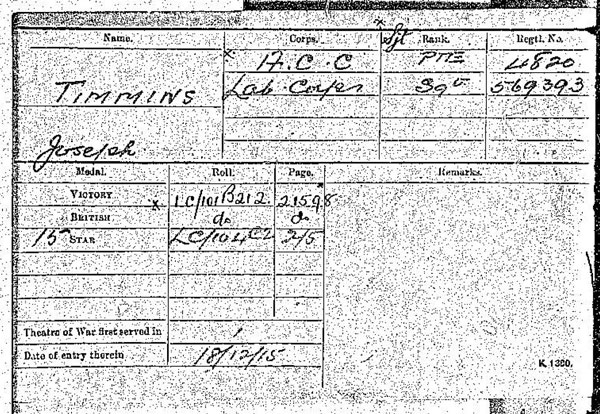 Name. Corps. Rank. Regtl. No.
x A.C.C * Sjt Pte 4820
TIMMINS Lab. Corps Sgt 569393
Joseph
Medal. Roll. Page. Remarks.
VICTORY x LC/101B212 21598
BRITISH do do
15 STAR LC/104C2 215
Theatre of War first served in 1
Date of entry therein 18/12/15
K 1380.